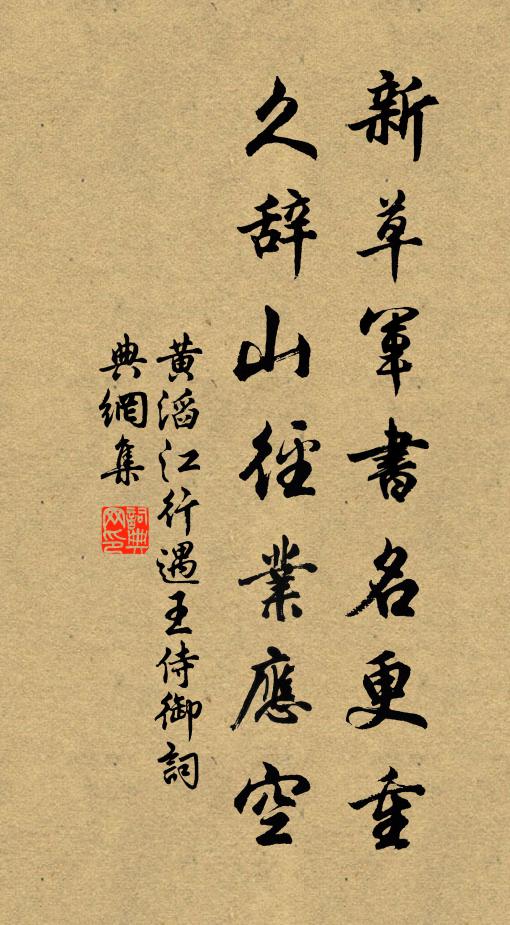 新草軍書名更重
久辞山徑業應空
黄滔江行遇王侍御詞
典網集
詞典網印